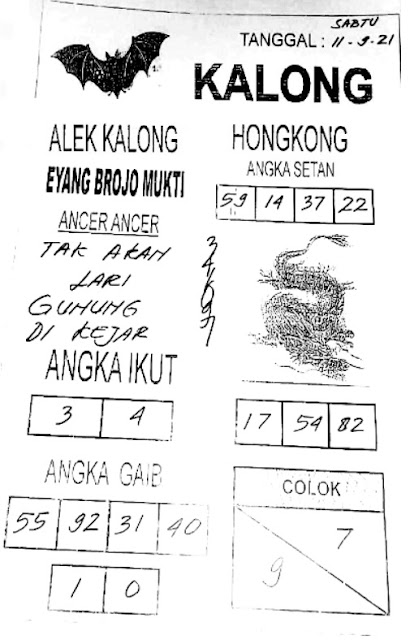 SABTU
TANGGAL : 11-9-21
KALONG
ALEK KALONG
EYANG BROJO MUKTI
ANCER ANCER
TAK AKAN
LARI
GUNUNG
DI KEJAR
ANGKA IKUT
3 4
ANGKA GAIB
55 92 31 40
1 0
HONGKONG
ANGKA SETAN
59 14 37 22
17 54 82
COLOK
7
9